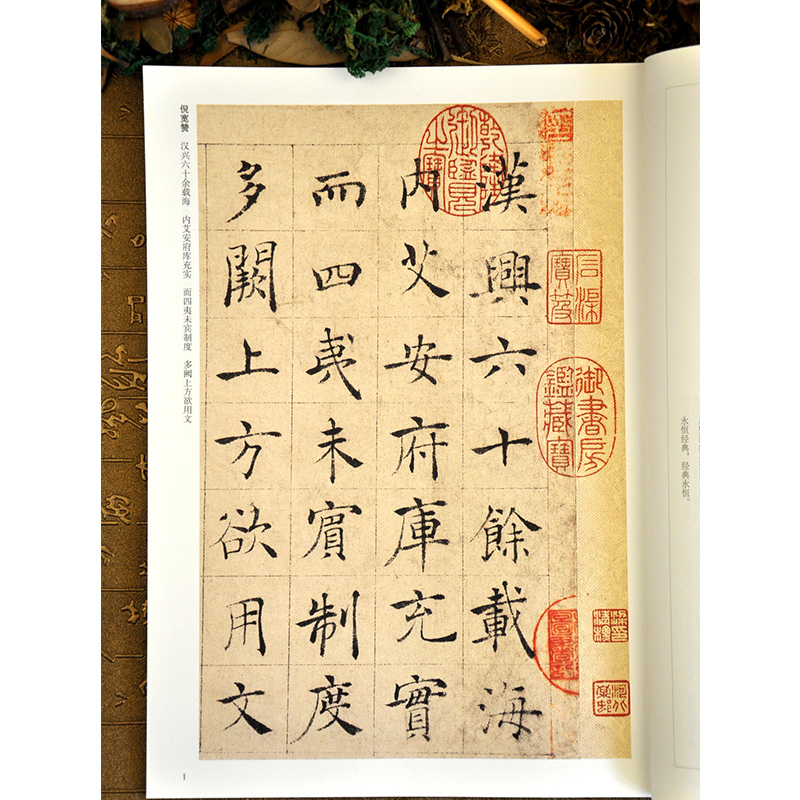 漢興六十餘載海
内艾安府庫充實
而四夷未賓制度
多闕上方欲用文
乾隆御覽之寶
石渠寶笈
御書房鑑藏寶
倪宽赞 汉兴六十余载海 内艾安府库充实 而四夷未宾制度 多阙上方欲用文
1
永恒经典，经典永恒。